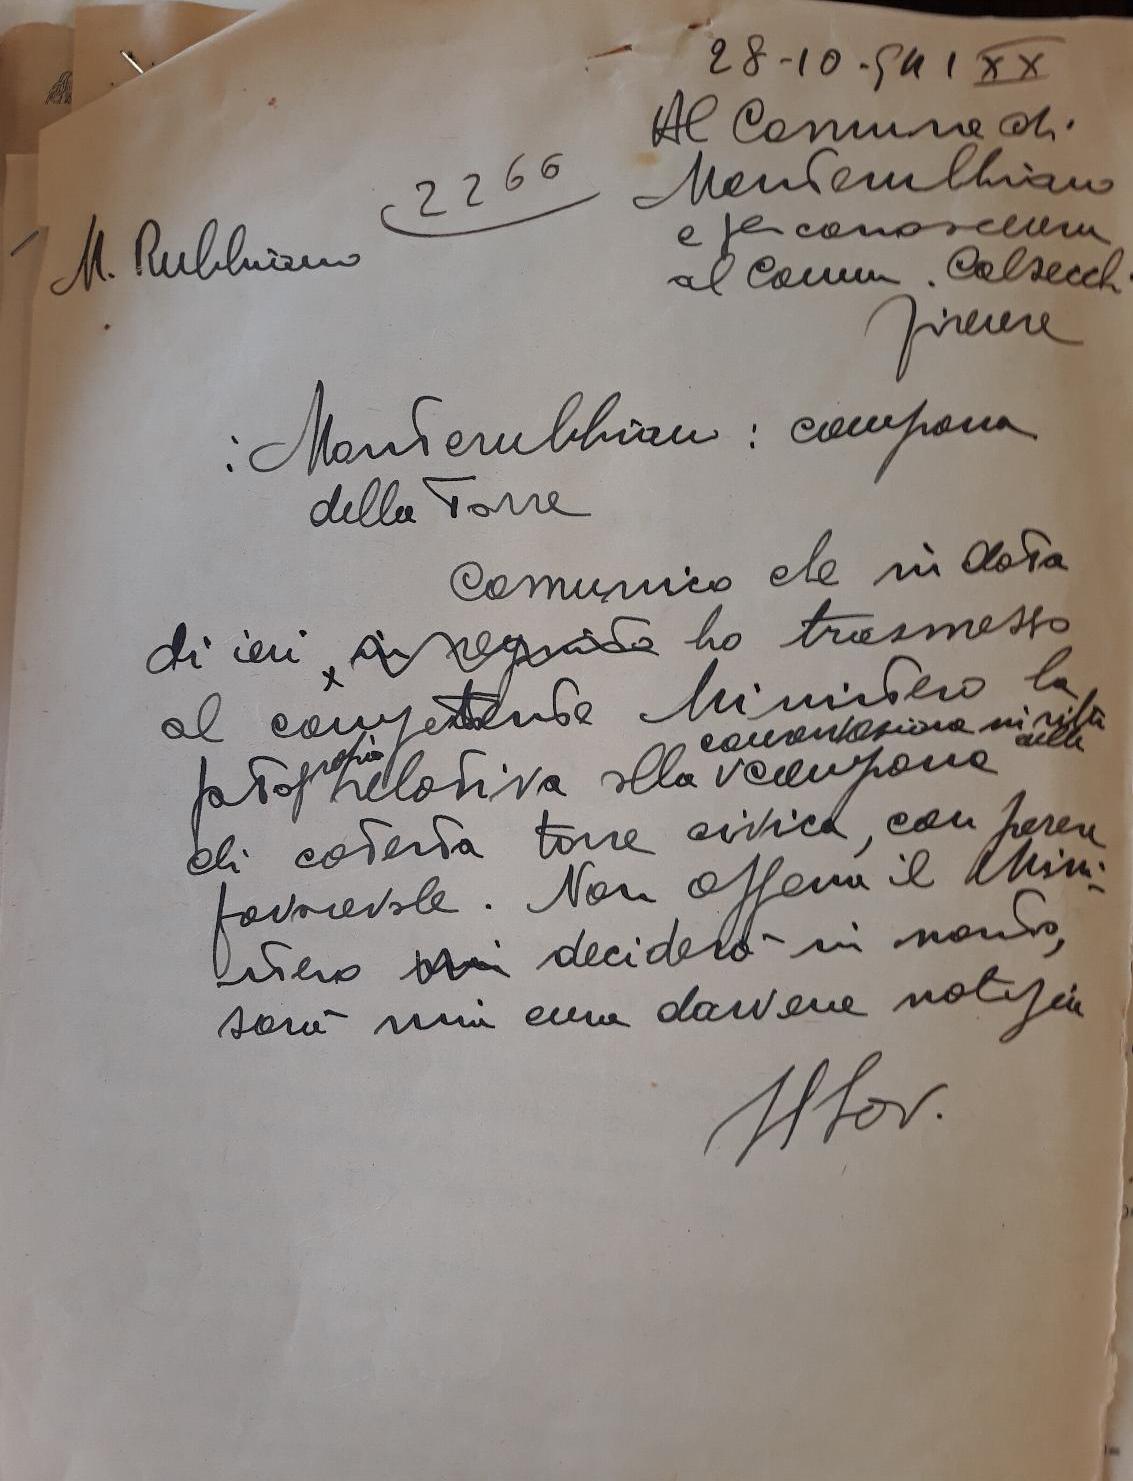 28-10-941 XX
Al Comune di
Monterubbiano
e per conoscenza
al Comm. Calzecchi
Firenze
2266
M. Rubbiano
: Monterubbiano : campana
della Torre
Comunico che in data
di ieri, ho trasmesso
al competente Ministero la
fotografia relativa alla campana
della
di codesta torre civica, con parere
favorevole. Non appena il Mini-
stero deciderà in merito,
sarà mia cura darvene notizia
Il Sov.